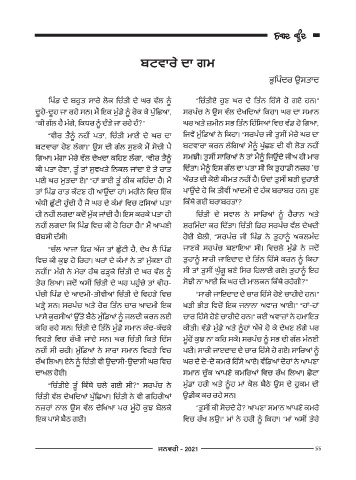 ਬਟਵਾਰੇ ਦਾ ਗਮ
ਭੁਪਿੰਦਰ ਉਸਤਾਦ
ਪਿੰਡ ਦੇ ਬਹੁਤ ਸਾਰੇ ਲੋਕ ਚਿੰਤੀ ਦੇ ਘਰ ਵੱਲ ਨੂੰ
ਦੂਹੋ-ਦੂਹ ਜਾ ਰਹੇ ਸਨ। ਮੈਂ ਇਕ ਮੁੰਡੇ ਨੂੰ ਰੋਕ ਕੇ ਪੁੱਛਿਆ,
“ਕੀ ਗੱਲ ਹੈ ਮੰਗੇ, ਕਿਧਰ ਨੂੰ ਦੌੜੇ ਜਾ ਰਹੇ ਹੋ?”
“ਵੀਰ ਤੈਨੂੰ ਨਹੀਂ ਪਤਾ, ਚਿੰਤੀ ਮਾਈ ਦੇ ਘਰ ਦਾ
ਬਟਵਾਰਾ ਹੋਣ ਲੱਗਾ।” ਉਸ ਦੀ ਗੱਲ ਸੁਣਕੇ ਮੈਂ ਸੋਚੀਂ ਪੈ
ਗਿਆ। ਮੰਗਾ ਮੇਰੇ ਵੱਲ ਦੇਖਦਾ ਕਹਿਣ ਲੱਗਾ, “ਵੀਰ ਤੈਨੂੰ
ਕੀ ਪਤਾ ਹੋਣਾ, ਤੂੰ ਤਾਂ ਸੁਵਖਤੇ ਨਿਕਲ ਜਾਂਦਾ ਏਂ ਤੇ ਰਾਤ
ਪਈ ਘਰ ਮੁੜਦਾ ਏਂ।” “ਹਾਂ ਭਾਈ ਤੂੰ ਠੀਕ ਕਹਿੰਦਾ ਹੈ। ਮੈਂ
ਤਾਂ ਪਿੰਡ ਰਾਤ ਕੱਟਣ ਹੀ ਆਉਂਦਾ ਹਾਂ। ਮਹੀਨੇ ਵਿਚ ਇੱਕ
ਅੱਧੀ ਛੁੱਟੀ ਹੁੰਦੀ ਹੈ ਜੋ ਘਰ ਦੇ ਕੰਮਾਂ ਵਿਚ ਫਸਿਆਂ ਪਤਾ
ਹੀ ਨਹੀਂ ਲਗਦਾ ਕਦੋਂ ਮੁੱਕ ਜਾਂਦੀ ਹੈ। ਇਸ ਕਰਕੇ ਪਤਾ ਹੀ
ਨਹੀਂ ਲਗਦਾ ਕਿ ਪਿੰਡ ਵਿਚ ਕੀ ਹੋ ਰਿਹਾ ਹੈ।” ਮੈਂ ਆਪਣੀ
ਬੇਬਸੀ ਦੱਸੀ।
“ਚੱਲ ਆਜਾ ਫਿਰ ਅੱਜ ਤਾਂ ਛੁੱਟੀ ਹੈ, ਦੇਖ ਲੈ ਪਿੰਡ
ਵਿਚ ਕੀ ਕੁਝ ਹੋ ਰਿਹਾ। ਘਰਾਂ ਦੇ ਕੰਮਾਂ ਨੇ ਤਾਂ ਮੁੱਕਣਾ ਹੀ
ਨਹੀਂ।” ਮੰਗੇ ਨੇ ਮੇਰਾ ਹੱਥ ਫੜ੍ਹਕੇ ਚਿੰਤੀ ਦੇ ਘਰ ਵੱਲ ਨੂੰ
ਤੋਰ ਲਿਆ। ਜਦੋਂ ਅਸੀਂ ਚਿੰਤੀ ਦੇ ਘਰ ਪਹੁੰਚੇ ਤਾਂ ਵੀਹ-
ਪੱਚੀ ਪਿੰਡ ਦੇ ਆਦਮੀ-ਤੀਵੀਆਂ ਚਿੰਤੀ ਦੇ ਵਿਹੜੇ ਵਿਚ
ਖੜ੍ਹੇ ਸਨ। ਸਰਪੰਚ ਅਤੇ ਹੋਰ ਤਿੰਨ ਚਾਰ ਆਦਮੀ ਇਕ
ਪਾਸੇ ਕੁਰਸੀਆਂ ਉੱਤੇ ਬੈਠੇ ਮੁੰਡਿਆਂ ਨੂੰ ਜਲਦੀ ਕਰਨ ਲਈ
ਕਹਿ ਰਹੇ ਸਨ। ਚਿੰਤੀ ਦੇ ਤਿੰਨੋਂ ਮੁੰਡੇ ਸਮਾਨ ਕੱਢ-ਕੱਢਕੇ
ਵਿਹੜੇ ਵਿਚ ਰੱਖੀ ਜਾਂਦੇ ਸਨ। ਪਰ ਚਿੰਤੀ ਕਿਤੇ ਦਿੱਸ
ਨਹੀਂ ਸੀ ਰਹੀ। ਮੁੰਡਿਆਂ ਨੇ ਸਾਰਾ ਸਮਾਨ ਵਿਹੜੇ ਵਿਚ
ਰੱਖ ਲਿਆ। ਏਨੇ ਨੂੰ ਚਿੰਤੀ ਵੀ ਉਦਾਸੀ-ਉਦਾਸੀ ਘਰ ਵਿਚ
ਦਾਖਲ ਹੋਈ।
“ਚਿੰਤੀਏ ਤੂੰ ਕਿੱਥੇ ਚਲੇ ਗਈ ਸੀ?” ਸਰਪੰਚ ਨੇ
ਚਿੰਤੀ ਵੱਲ ਦੇਖਦਿਆਂ ਪੁੱਛਿਆ। ਚਿੰਤੀ ਨੇ ਵੀ ਗਹਿਰੀਆਂ
ਨਜ਼ਰਾਂ ਨਾਲ ਉਸ ਵੱਲ ਦੇਖਿਆ ਪਰ ਮੂੰਹੋਂ ਕੁਝ ਬੋਲਕੇ
ਇਕ ਪਾਸੇ ਬੈਠ ਗਈ।
“ਚਿੰਤੀਏ ਹੁਣ ਘਰ ਦੇ ਤਿੰਨ ਹਿੱਸੇ ਹੋ ਗਏ ਹਨ।”
ਸਰਪੰਚ ਨੇ ਉਸ ਵੱਲ ਦੇਖਦਿਆਂ ਕਿਹਾ। ਘਰ ਦਾ ਸਮਾਨ
ਘਰ ਅਤੇ ਜ਼ਮੀਨ ਸਭ ਤਿੰਨ ਹਿੱਸਿਆਂ ਵਿਚ ਵੰਡ ਹੋ ਗਿਆ,
ਜਿਵੇਂ ਮੁੰਡਿਆਂ ਨੇ ਕਿਹਾ। “ਸਰਪੰਚ ਜੀ ਤੁਸੀਂ ਮੇਰੇ ਘਰ ਦਾ
ਬਟਵਾਰਾ ਕਰਨ ਲੱਗਿਆਂ ਮੈਨੂੰ ਪੁੱਛਣ ਦੀ ਵੀ ਲੋੜ ਨਹੀਂ
ਸਮਝੀ। ਤੁਸੀਂ ਸਾਰਿਆਂ ਨੇ ਤਾਂ ਮੈਨੂੰ ਜਿਉਂਦੇ ਜੀਅ ਹੀ ਮਾਰ
ਦਿੱਤਾ। ਮੈਨੂੰ ਇਸ ਗੱਲ ਦਾ ਪਤਾ ਸੀ ਕਿ ਤੁਹਾਡੀ ਨਜ਼ਰ 'ਚ
ਔਰਤ ਦੀ ਕੋਈ ਕੀਮਤ ਨਹੀਂ ਹੈ। ਓਦਾਂ ਤੁਸੀਂ ਬੜੀ ਦੁਹਾਈ
ਪਾਉਂਦੇ ਹੋ ਕਿ ਤੀਵੀਂ ਆਦਮੀ ਦੇ ਹੱਕ ਬਰਾਬਰ ਹਨ। ਹੁਣ
ਕਿੱਥੇ ਗਈ ਬਰਾਬਰਤਾ?
ਚਿੰਤੀ ਦੇ ਸਵਾਲ ਨੇ ਸਾਰਿਆਂ ਨੂੰ ਹੈਰਾਨ ਅਤੇ
ਸ਼ਰਮਿੰਦਾ ਕਰ ਦਿੱਤਾ। ਚਿੰਤੀ ਫਿਰ ਸਰਪੰਚ ਵੱਲ ਦੇਖਦੀ
ਹੋਈ ਬੋਲੀ, “ਸਰਪੰਚ ਜੀ ਪਿੰਡ ਨੇ ਤੁਹਾਨੂੰ ਅਕਲਮੰਦ
ਜਾਣਕੇ ਸਰਪੰਚ ਬਣਾਇਆ ਸੀ। ਵਿਚਲੇ ਮੁੰਡੇ ਨੇ ਜਦੋਂ
ਤੁਹਾਨੂੰ ਸਾਰੀ ਜਾਇਦਾਦ ਦੇ ਤਿੰਨ ਹਿੱਸੇ ਕਰਨ ਨੂੰ ਕਿਹਾ
ਸੀ ਤਾਂ ਤੁਸੀਂ ਘੁੱਗੂ ਬਣੇ ਸਿਰ ਹਿਲਾਈ ਗਏ। ਤੁਹਾਨੂੰ ਇਹ
ਸੋਝੀ ਨਾ ਆਈ ਕਿ ਘਰ ਦੀ ਮਾਲਕਨ ਕਿੱਥੇ ਰਹੇਗੀ?”
“ਸਾਰੀ ਜਾਇਦਾਦ ਦੇ ਚਾਰ ਹਿੱਸੇ ਹੋਣੇ ਚਾਹੀਦੇ ਹਨ।”
ਖੜੀ ਭੀੜ ਵਿਚੋਂ ਇਕ ਜਨਾਨਾ ਅਵਾਜ਼ ਆਈ। “ਹਾਂ-ਹਾਂ
ਚਾਰ ਹਿੱਸੇ ਹੋਣੇ ਚਾਹੀਦੇ ਹਨ।” ਕਈ ਅਵਾਜ਼ਾਂ ਨੇ ਹਮਾਇਤ
ਕੀਤੀ। ਵੱਡੇ ਮੁੰਡੇ ਅਤੇ ਨੂੰਹਾਂ ਔਖੇ ਹੋ ਕੇ ਦੇਖਣ ਲੱਗੇ ਪਰ
ਮੂੰਹੋਂ ਕੁਝ ਨਾ ਕਹਿ ਸਕੇ। ਸਰਪੰਚ ਨੂੰ ਸਭ ਦੀ ਗੱਲ ਮੰਨਣੀ
ਪਈ। ਸਾਰੀ ਜਾਇਦਾਦ ਦੇ ਚਾਰ ਹਿੱਸੇ ਹੋ ਗਏ। ਸਾਰਿਆਂ ਨੂੰ
ਘਰ ਦੇ ਦੋ-ਦੋ ਕਮਰੇ ਹਿੱਸੇ ਆਏ। ਵੱਡਿਆਂ ਦੋਹਾਂ ਨੇ ਆਪਣਾ
ਸਮਾਨ ਚੁੱਕ ਆਪਣੇ ਕਮਰਿਆਂ ਵਿਚ ਰੱਖ ਲਿਆ। ਛੋਟਾ
ਮੁੰਡਾ ਹਰੀ ਅਤੇ ਨੂੰਹ ਮਾਂ ਕੋਲ ਬੈਠੇ ਉਸ ਦੇ ਹੁਕਮ ਦੀ
ਉਡੀਕ ਕਰ ਰਹੇ ਸਨ।
“ਤੁਸੀਂ ਕੀ ਸੋਚਦੇ ਹੋ? ਆਪਣਾ ਸਮਾਨ ਆਪਣੇ ਕਮਰੇ
ਵਿਚ ਰੱਖ ਲਉ।” ਮਾਂ ਨੇ ਹਰੀ ਨੂੰ ਕਿਹਾ। “ਮਾਂ ਅਸੀਂ ਤੇਰੇ
ਜਨਵਰੀ - 2021
55